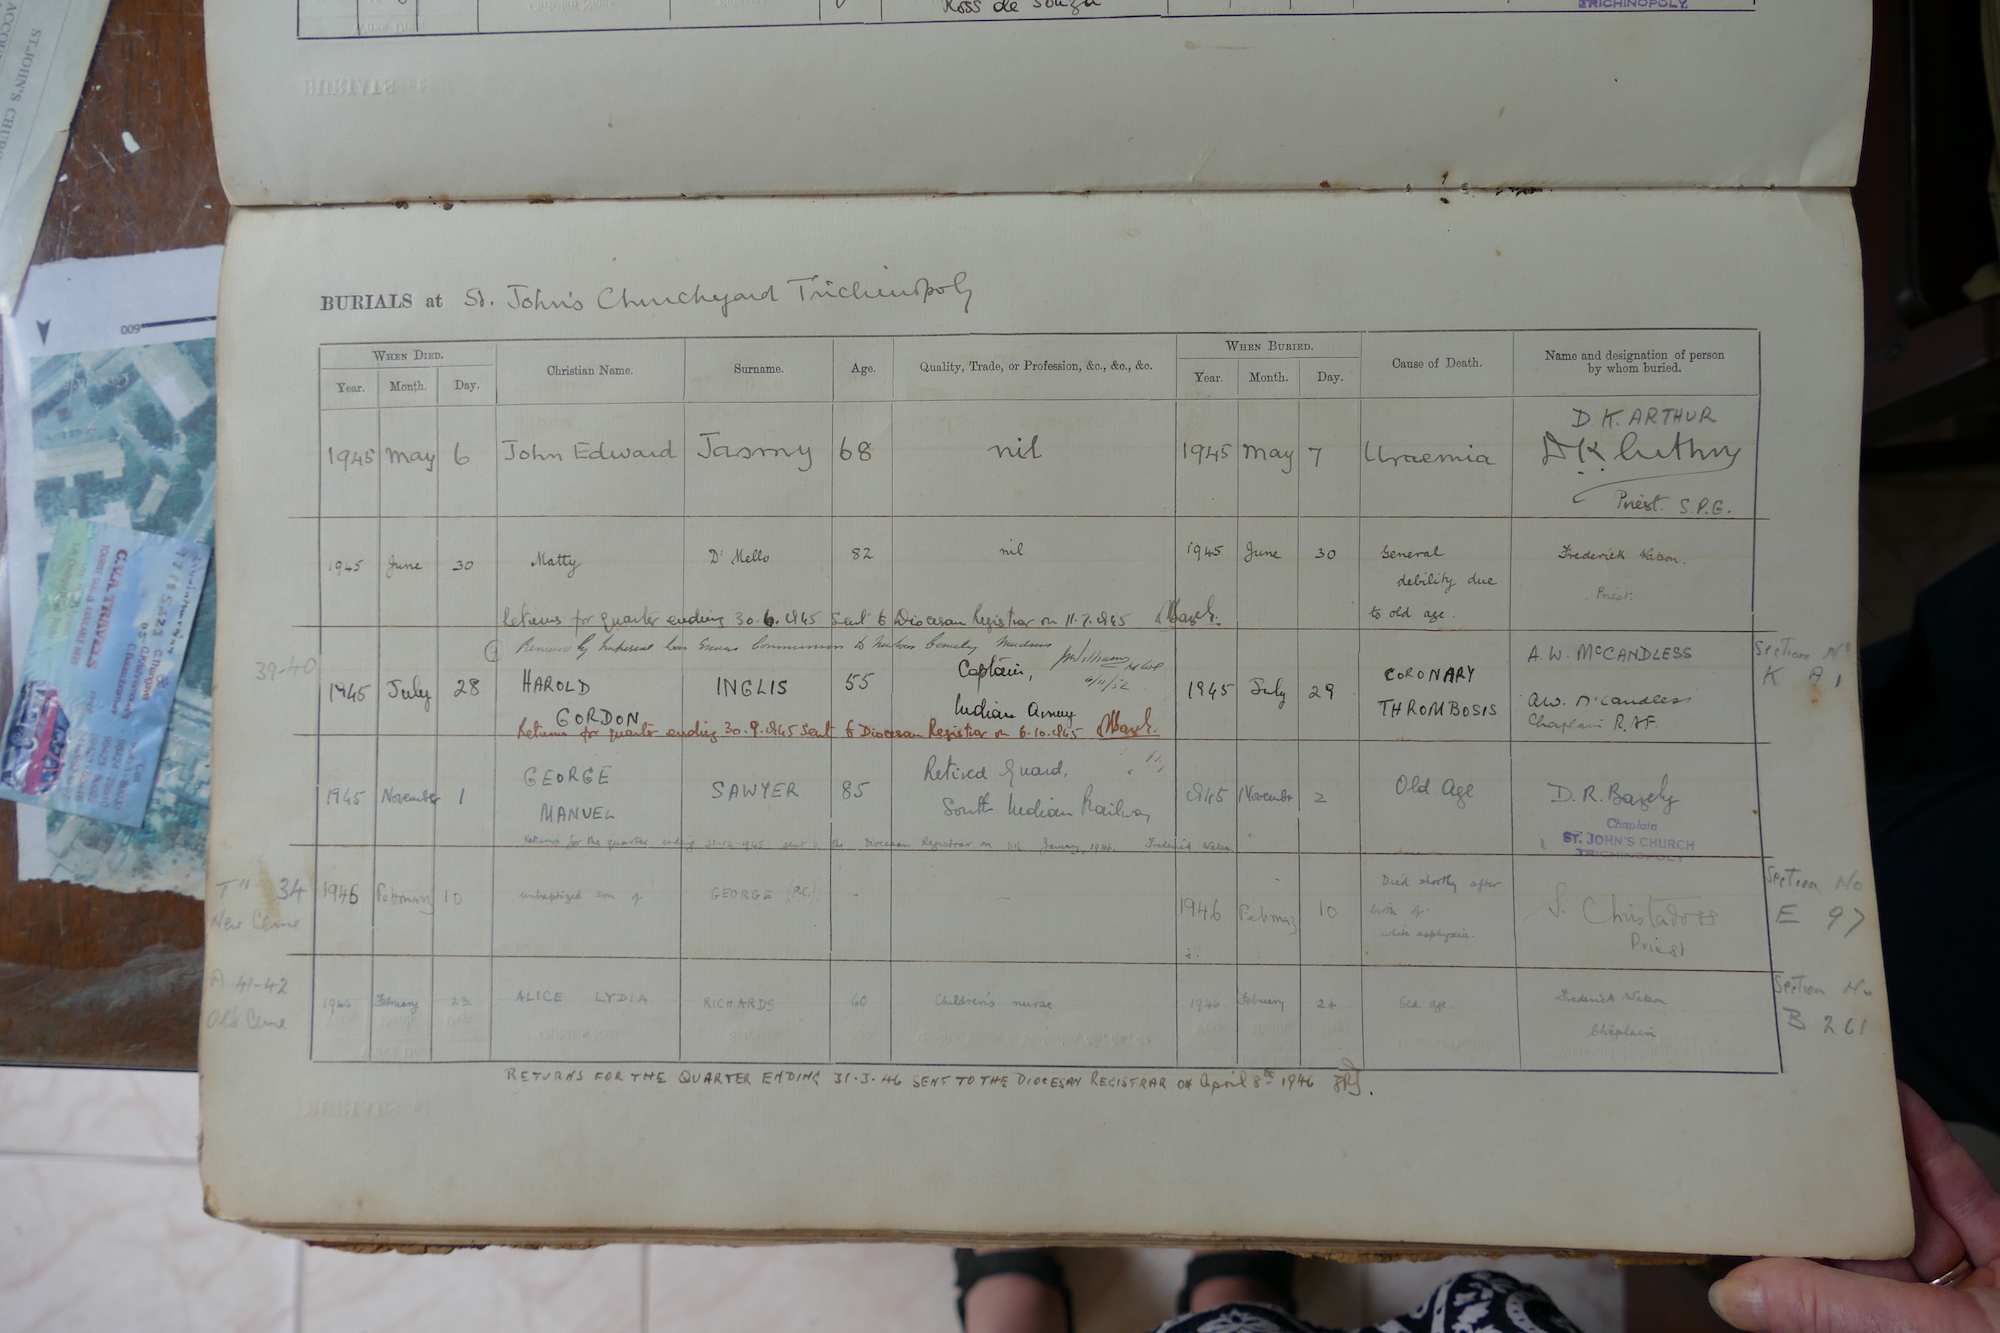 ST. JOHN'S CHURC
ACCOU
Ross de Souza
TRICHINOPOLY.
BURIALS at St. John's Churchyard Trichinopoly
WHEN DIED. Christian Name. Surname. Age. Quality, Trade, or Profession, &c., &c., &c. WHEN BURIED. Cause of Death. Name and designation of person by whom buried.
Year. Month. Day. Year. Month. Day.
D. K. ARTHUR
1945 May 6 John Edward Jasmy 68 nil 1945 May 7 Uraemia D.K. Arthur
Priest. S.P.G.
1945 June 30 Matty D'Mello 82 nil 1945 June 30 General debility due to old age. Frederick Watson. Priest.
Returns for quarter ending 30.6.1945 sent to Diocesan Registrar on 11.7.1945
Removed by Imperial War Graves Commission to Madras Cemetery Madras
6/11/52
39-40 1945 July 28 HAROLD GORDON INGLIS 55 Captain, Indian Army 1945 July 29 CORONARY THROMBOSIS A.W. McCANDLESS
A.W. McCandless
Chaplain R.A.F.
Section No
K A 1
Returns for quarter ending 30.9.1945 sent to Diocesan Registrar on 6.10.1945
1945 November 1 GEORGE MANUEL SAWYER 85 Retired Guard, South Indian Railway 1945 November 2 Old Age D. R. Bazely
Chaplain
ST. JOHN'S CHURCH
TRICHINOPOLY
Returns for the quarter ending 31-12-1945 sent to the Diocesan Registrar on 11th January, 1946. Frederick Watson
34
New Ceme
1946 February 10 unbaptized son of GEORGE (P.C.) - — 1946 February 10 Died shortly after birth of white asphyxia. S. Christadoss
Priest
Section No
E 97
A 41-42
Old Ceme
1946 February 23. ALICE LYDIA RICHARDS 60 Children's nurse 1946 February 24 Old age. Frederick Watson
Chaplain
Section No
B 261
RETURNS FOR THE QUARTER ENDING 31.3.46 SENT TO THE DIOCESAN REGISTRAR ON April 8th 1946
C.V.R. TRAVELS
009